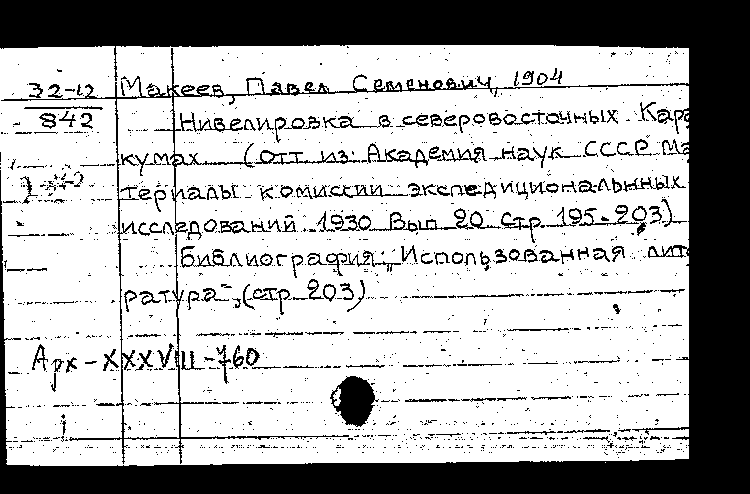 32-12 Макеев, Павел Семенович, 1904
842 Нивелировка в северовосточных Кара
кумах (отт из: Академия наук СССР Ма
териалы комиссии экспедициональнных
исследований 1930 Вып 20 стр 195-203)
Библиография: „Использованная лите
ратура", (стр 203)
Арх-XXXVIII-760